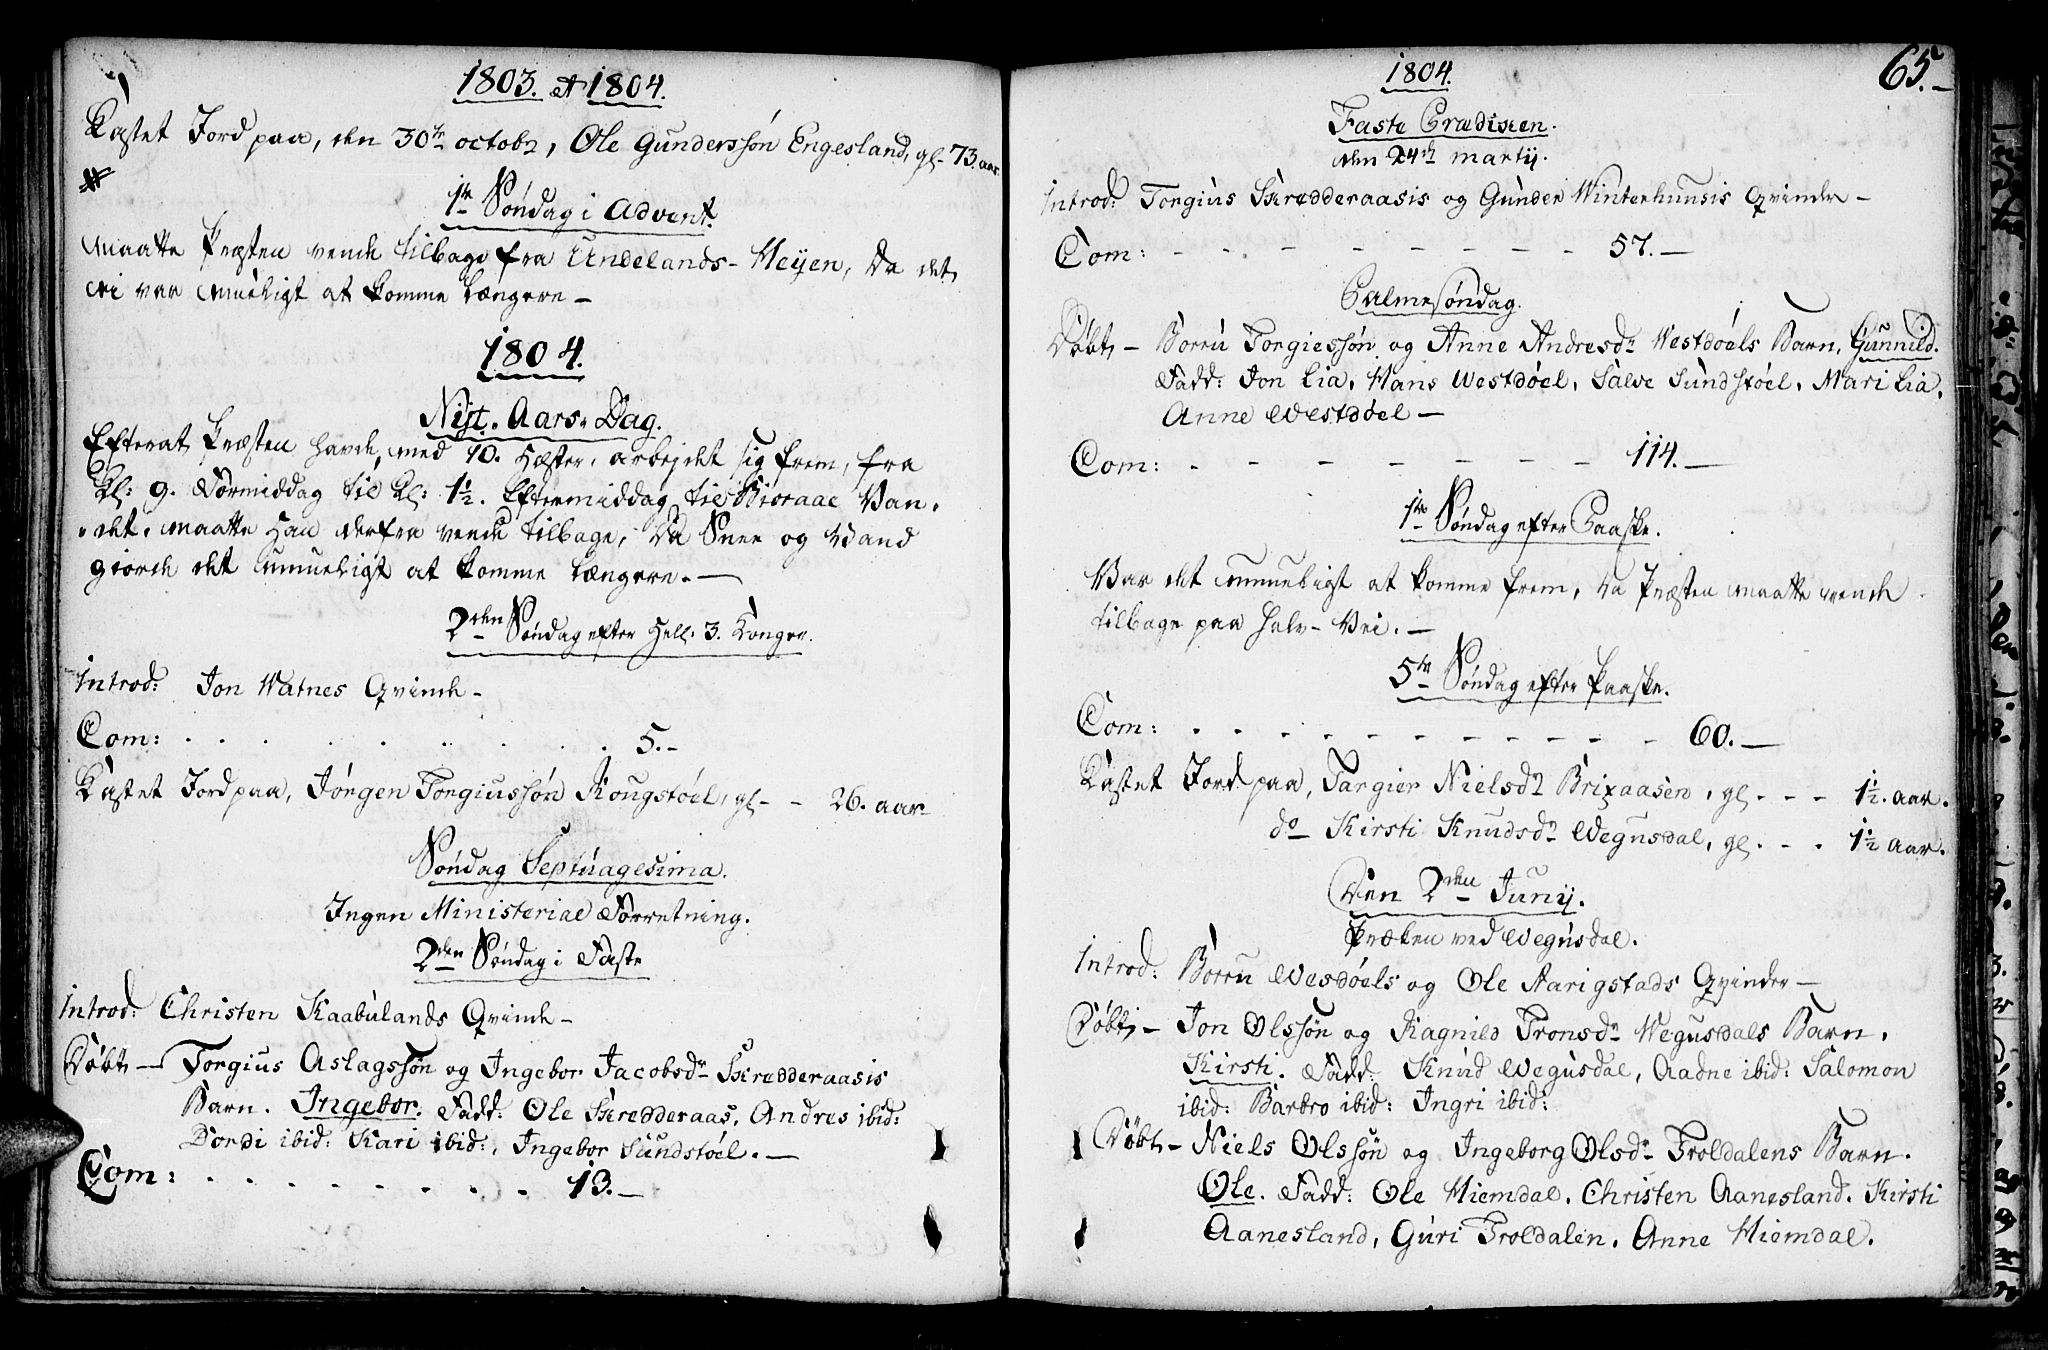 1803. et 1804.
Kastet Jord paa, den 30te octobr, Ole Gunderssøn Engesland, gl. 73. aar.
1te Søndag i Advent.
maatte Præsten vende tilbage fra Undelands-Heyen, da det
ei var mueligt at komme længere —
1804.
Nyt. Aars. Dag.
Efterat Præsten havde, med 10. Hæster, arbejdet sig frem, fra
Kl: 9. Formiddag til Kl: 1½. Eftermiddag til Bioraae Van-
det, maatte Han derfra vende tilbage, da Snee og Vand
giorde det umueligt at komme længere. —
2den Søndag efter Hell: 3. Konger.
Introd: Jon Watnes Qvinde —
Com: . . . . . . . . 5. —
Kastet Jord paa, Jørgen Torgiussøn Kougstøel, gl — — 26. aar
Søndag Septuagesima.
Ingen Ministerial Forretning.
2den Søndag i Faste
Introd: Christen Kaabulands Qvinde —
Døbt — Torgius Aslagssøn og Ingebor Jacobsdr Skredderaasis
Barn. Ingebor. Fadd: Ole Skredderaas, Andres ibid:
Dordi ibid: Kari ibid:, Ingebor Sundstøel. —
Com: . . . . . . . . 13. —
65. —
1804.
Faste Prædiken.
den 24de martij.
Introd: Torgius Skredderaasis og Gunder Winterhuusis Qvinder —
Com: - - - - - - - - 57. —
Palmesøndag.
Døbt — Borru Torgiessøn og Anne Andresdr Westdøels Barn, Gunnild.
Fadd: Jon Lia, Hans Westdøel, Salve Sundstøel, Mari Lia,
Anne Westdøel —
Com: - - - - - - - 114. —
1te Søndag efter Paaske.
Var det umueligt at komme frem, da Præsten maatte vende
tilbage paa halv-Vei. —
5te Søndag efter Paaske.
Com: - - - - - - - - - - 60. —
Kastet Jord paa, Targier Nielsdr Brixaasen, gl. - - - 1½. aar.
do — Kirsti Knudsdr Wegusdal, gl. - - - 1½ aar.
Den 2den Junij.
Præken ved Wegusdal.
Introd: Borru Wesdøels og Ole Aarigstads Qvinder —
Døbt — Jon Olssøn og Ragnild Tronsdr Wegusdals Barn,
Kirsti. Fadd: Knud Wegusdal, Aadne ibid: Salomon
ibid: Barbro ibid: Ingri ibid:
Døbt — Niels Olssøn og Ingeborg Olsdr Troldalens Barn.
Ole. Fadd: Ole Hiemdal, Christen Aanesland, Kirsti
Aanesland, Guri Troldalen, Anne Hiemdal.